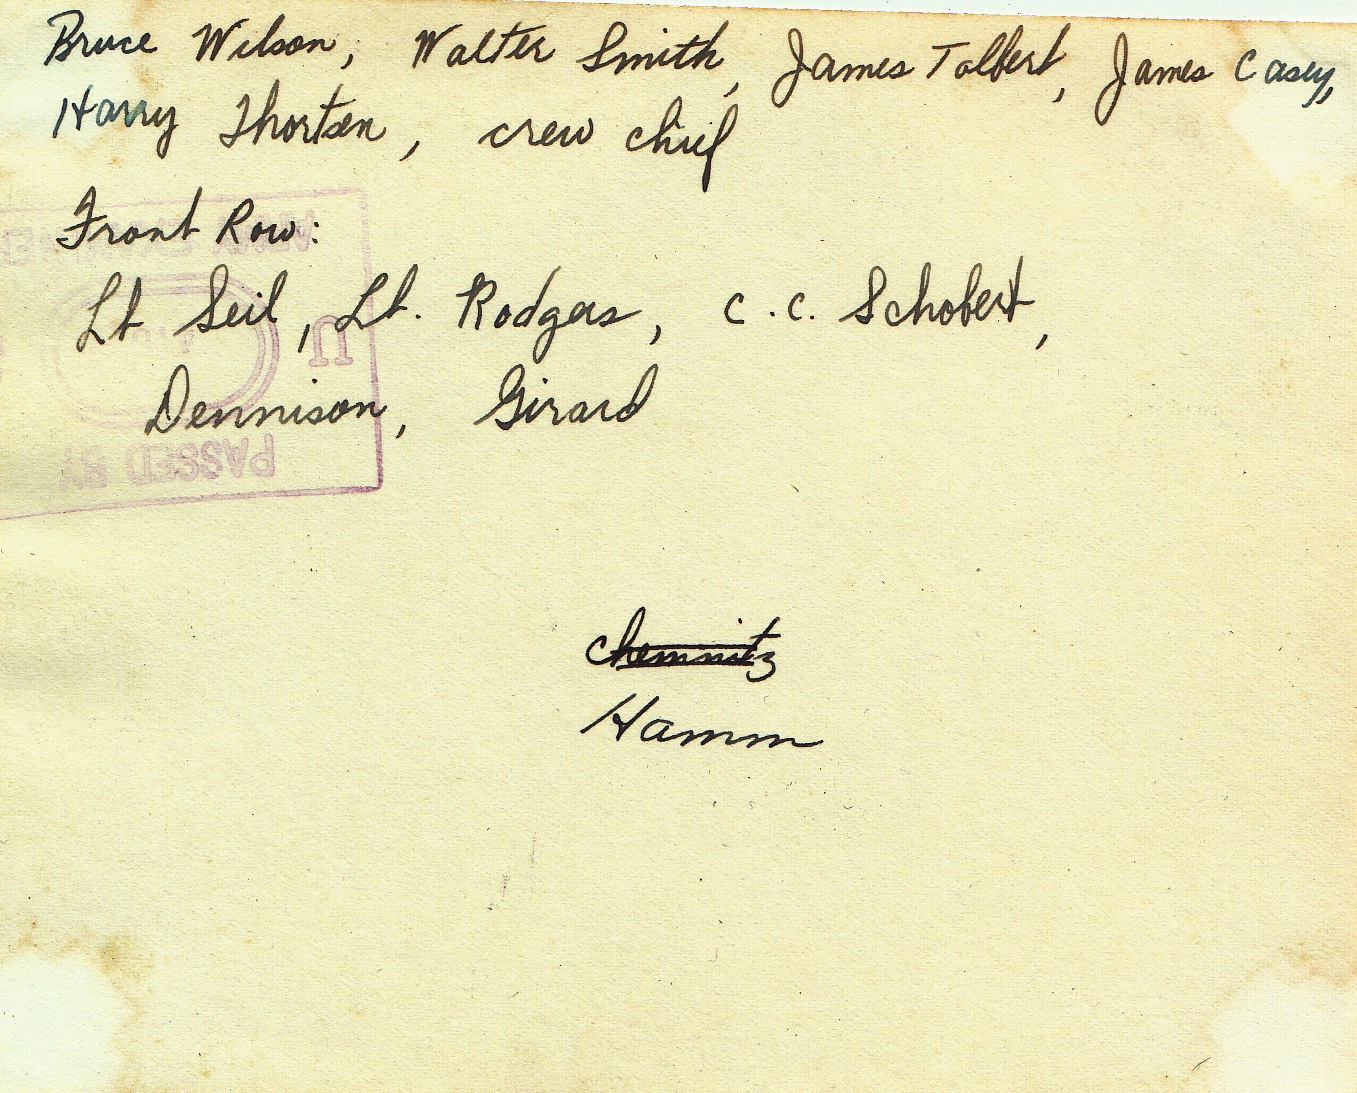 Bruce Wilson, Walter Smith, James Talbert, James Casey,
Harry Thortsen, crew chief
Front Row:
Lt Seil, Lt. Rodgers, C.C. Schobert,
Dennison, Girard
Chemnitz
Hamm
ARMY EXAMINER
U
PASSED BY